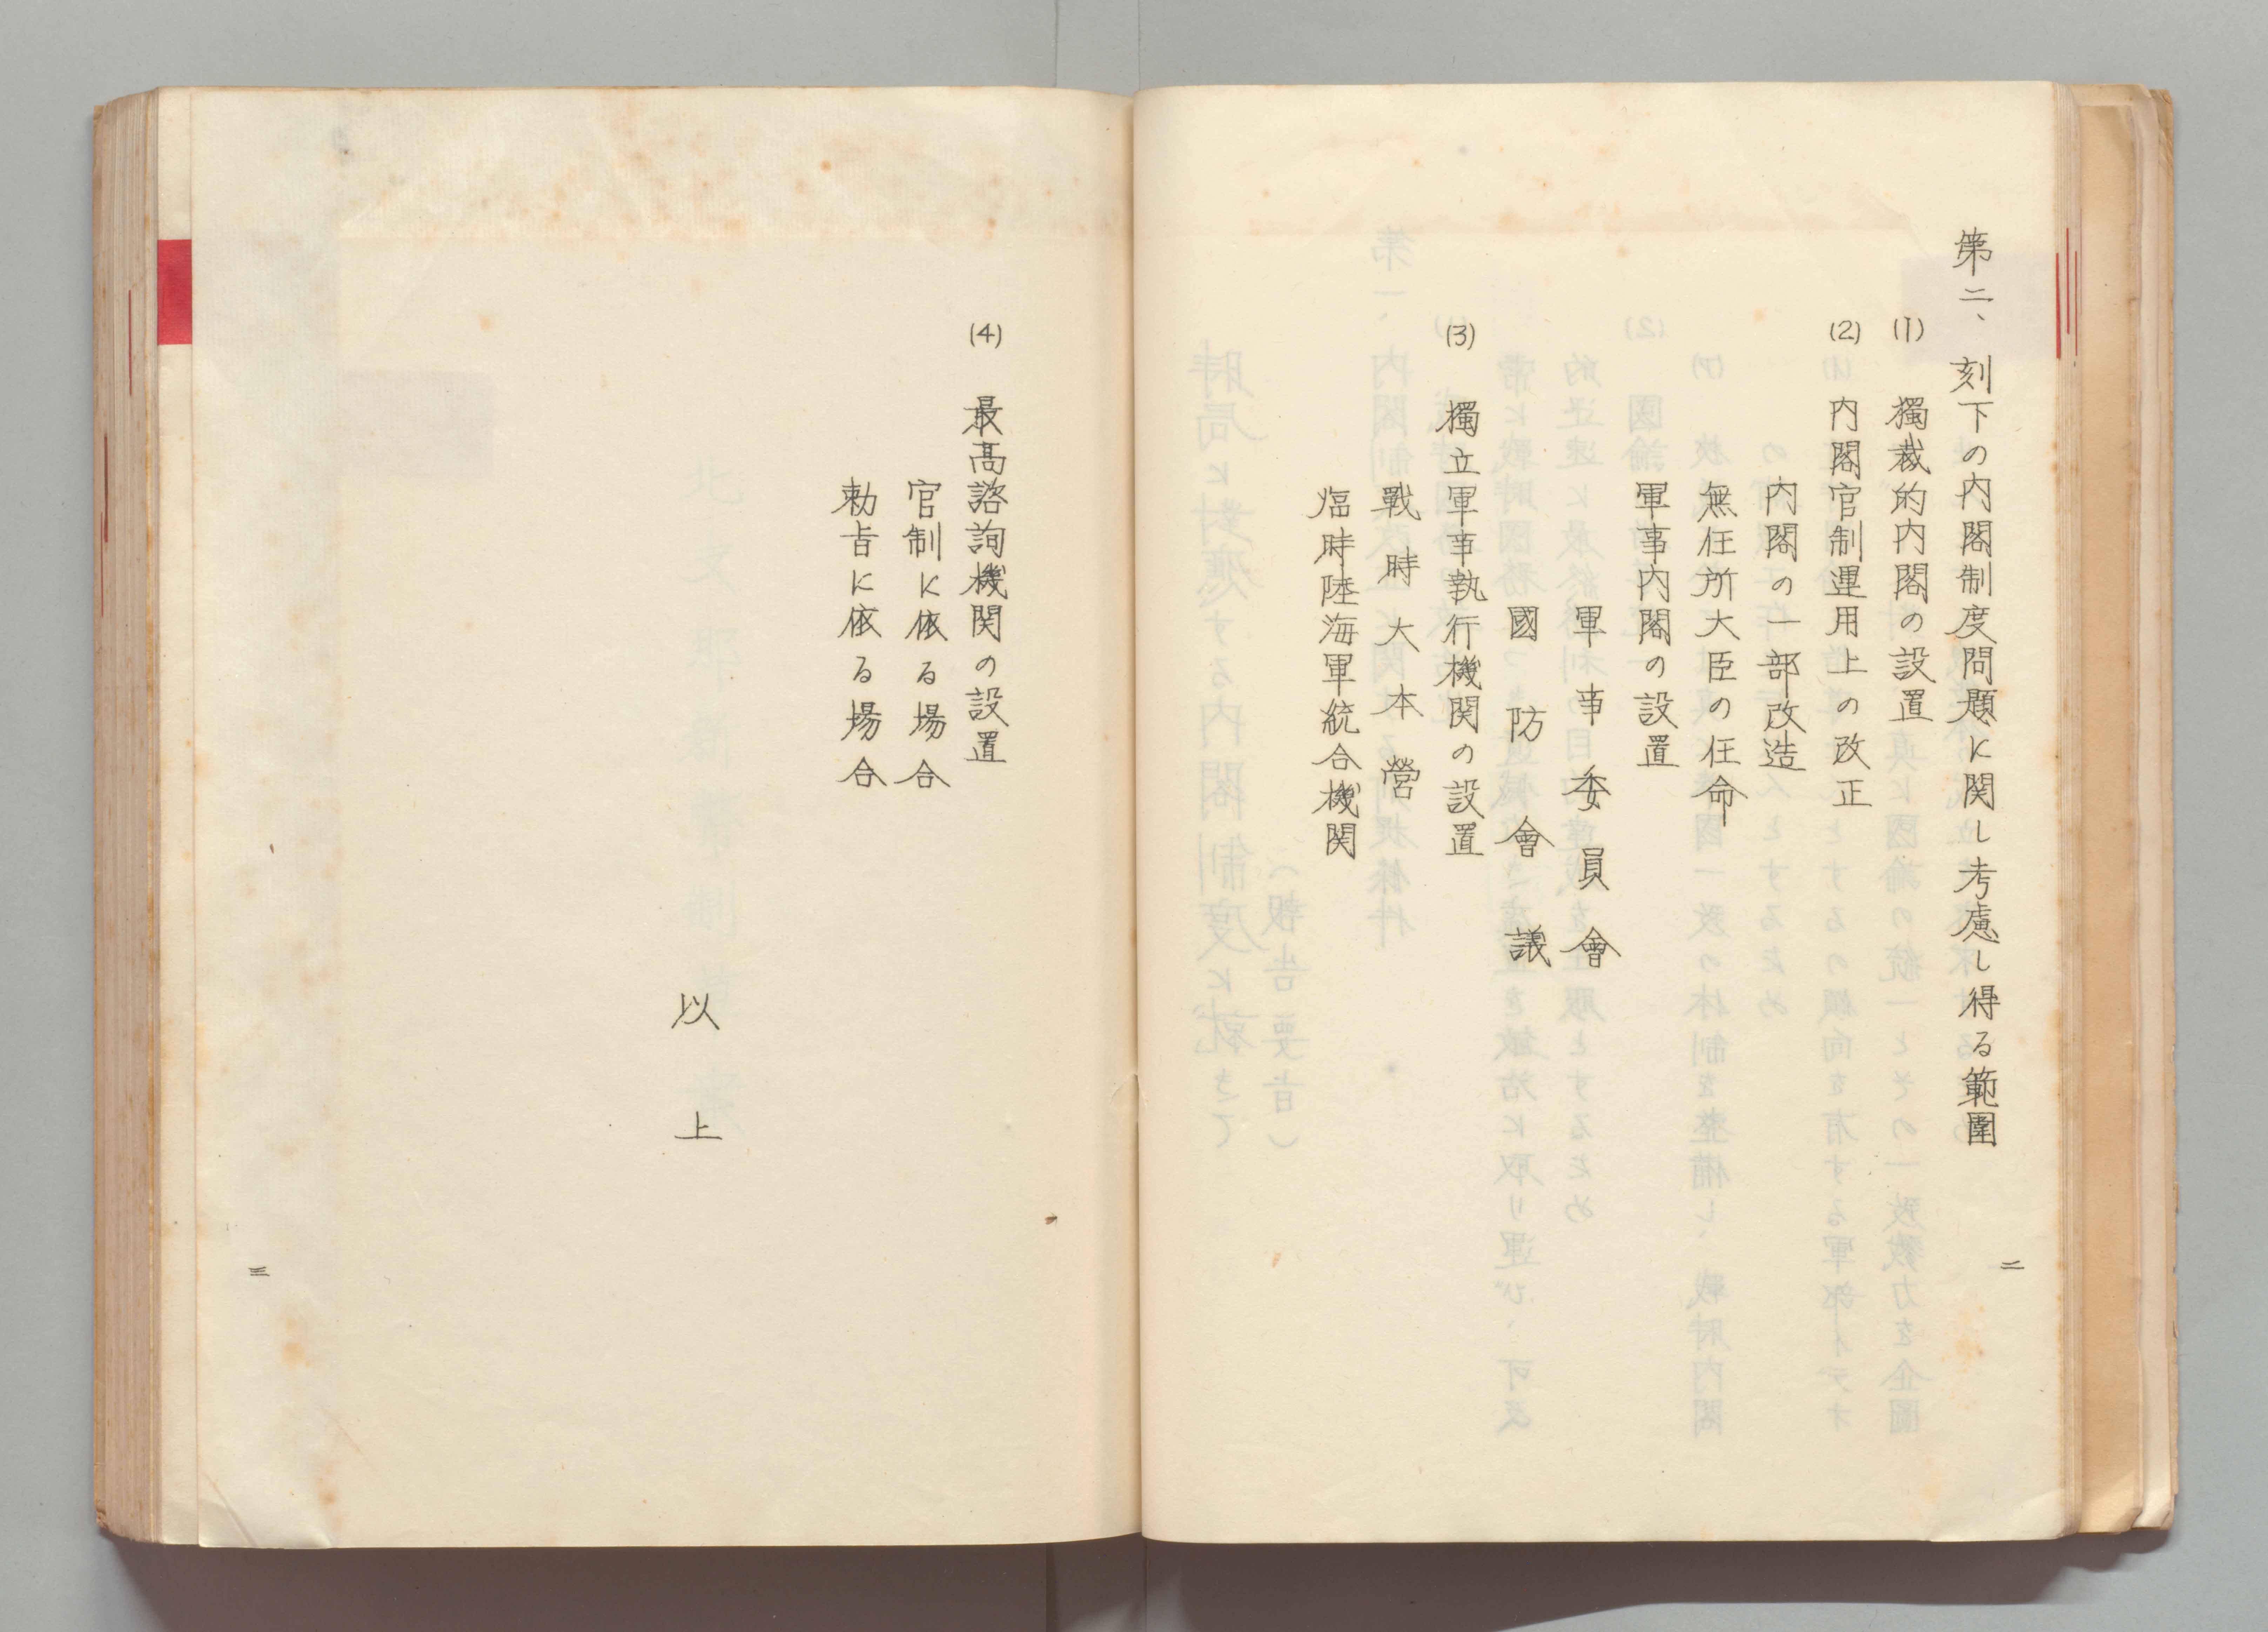 第二、刻下の内閣制度問題に関し考慮し得る範囲
(1) 獨裁的内閣の設置
(2) 内閣官制運用上の改正
内閣の一部改造
無任所大臣の任命
軍事内閣の設置
軍事委員會
國防會議
(3) 獨立軍事執行機関の設置
戰時大本營
臨時陸海軍統合機関
二
(4) 最高諮詢機関の設置
官制に依る場合
勅旨に依る場合
以上
三